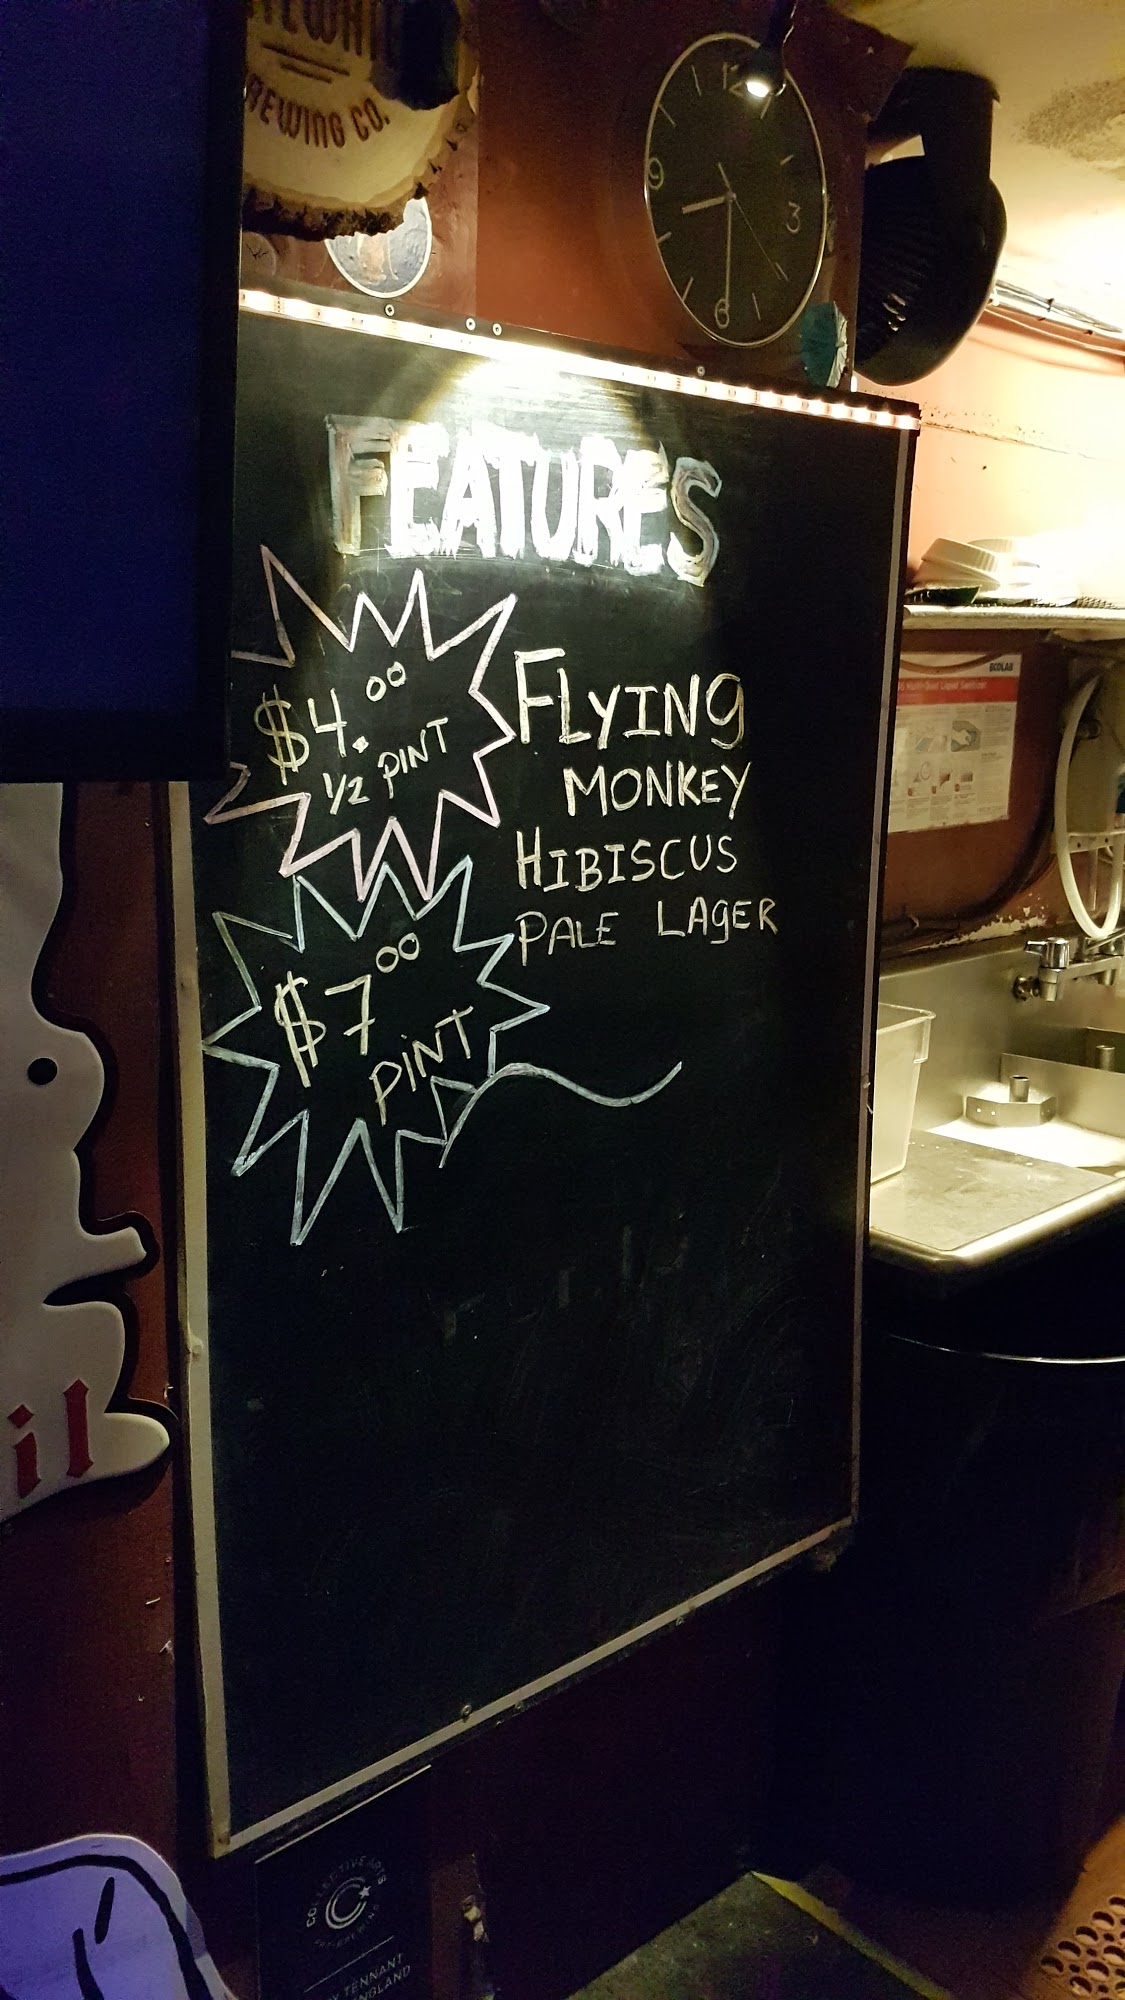 REWING CO.
12
9
3
6
FEATURES
$4.00
1/2 PINT
FLYING
MONKEY
HIBISCUS
PALE LAGER
$7 00
PINT
ECOLAB
il
COLLECTIVE ARTS
TENNANT